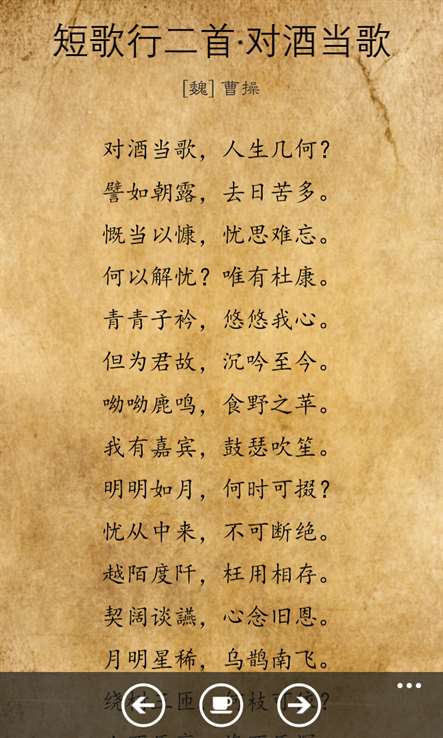 短歌行二首·对酒当歌
[魏] 曹操
对酒当歌，人生几何？
譬如朝露，去日苦多。
慨当以慷，忧思难忘。
何以解忧？唯有杜康。
青青子衿，悠悠我心。
但为君故，沉吟至今。
呦呦鹿鸣，食野之苹。
我有嘉宾，鼓瑟吹笙。
明明如月，何时可掇？
忧从中来，不可断绝。
越陌度阡，枉用相存。
契阔谈讌，心念旧恩。
月明星稀，乌鹊南飞。
绕树三匝，何枝可依？